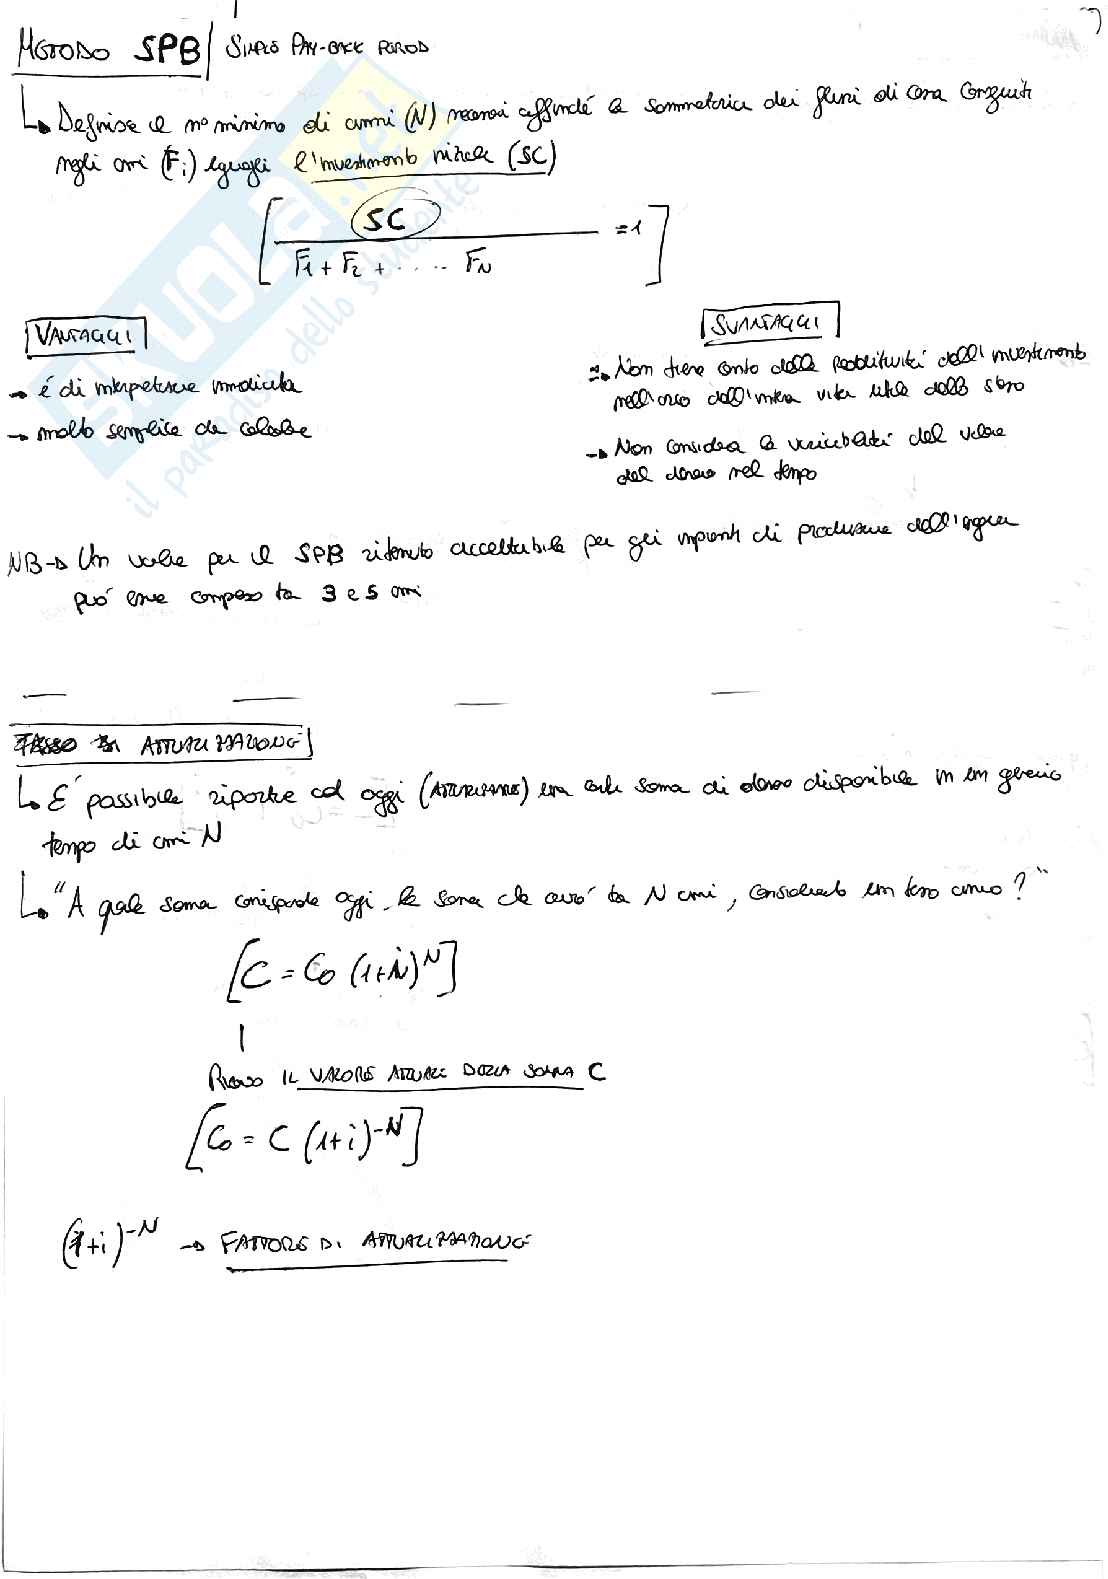 METODO SPB / SIMPLE PAY-BACK PERIOD
↳ Definisce il n° minimo di anni (N) necessari affinché la sommatoria dei flussi di cassa conseguiti
negli anni (Fi) eguagli l'investimento iniziale (SC)
[ SC / F1 + F2 + ..... FN = 1 ]
VANTAGGI
→ é di interpretazione immediata
→ molto semplice da calcolare
SVANTAGGI
→ Non tiene conto della redditività dell'investimento
nell'arco dell'intera vita utile dello stesso
→ Non considera la variabilità del valore
del denaro nel tempo
NB → Un valore per il SPB ritenuto accettabile per gli impianti di produzione dell'energia
può essere compreso tra 3 e 5 anni
TASSO DI ATTUALIZZAZIONE
↳ E' possibile riportare ad oggi (ATTUALIZZARE) una certa somma di denaro disponibile in un generico
tempo di anni N
↳ "A quale somma corrisponde oggi, la somma che avrò tra N anni, considerando un tasso annuo?"
[C = C0 (1+i)^N]
Ricavo IL VALORE ATTUALE DELLA SOMMA C
[C0 = C (1+i)^-N]
(1+i)^-N → FATTORE DI ATTUALIZZAZIONE
SKUOLA.net
il paradiso dello studente